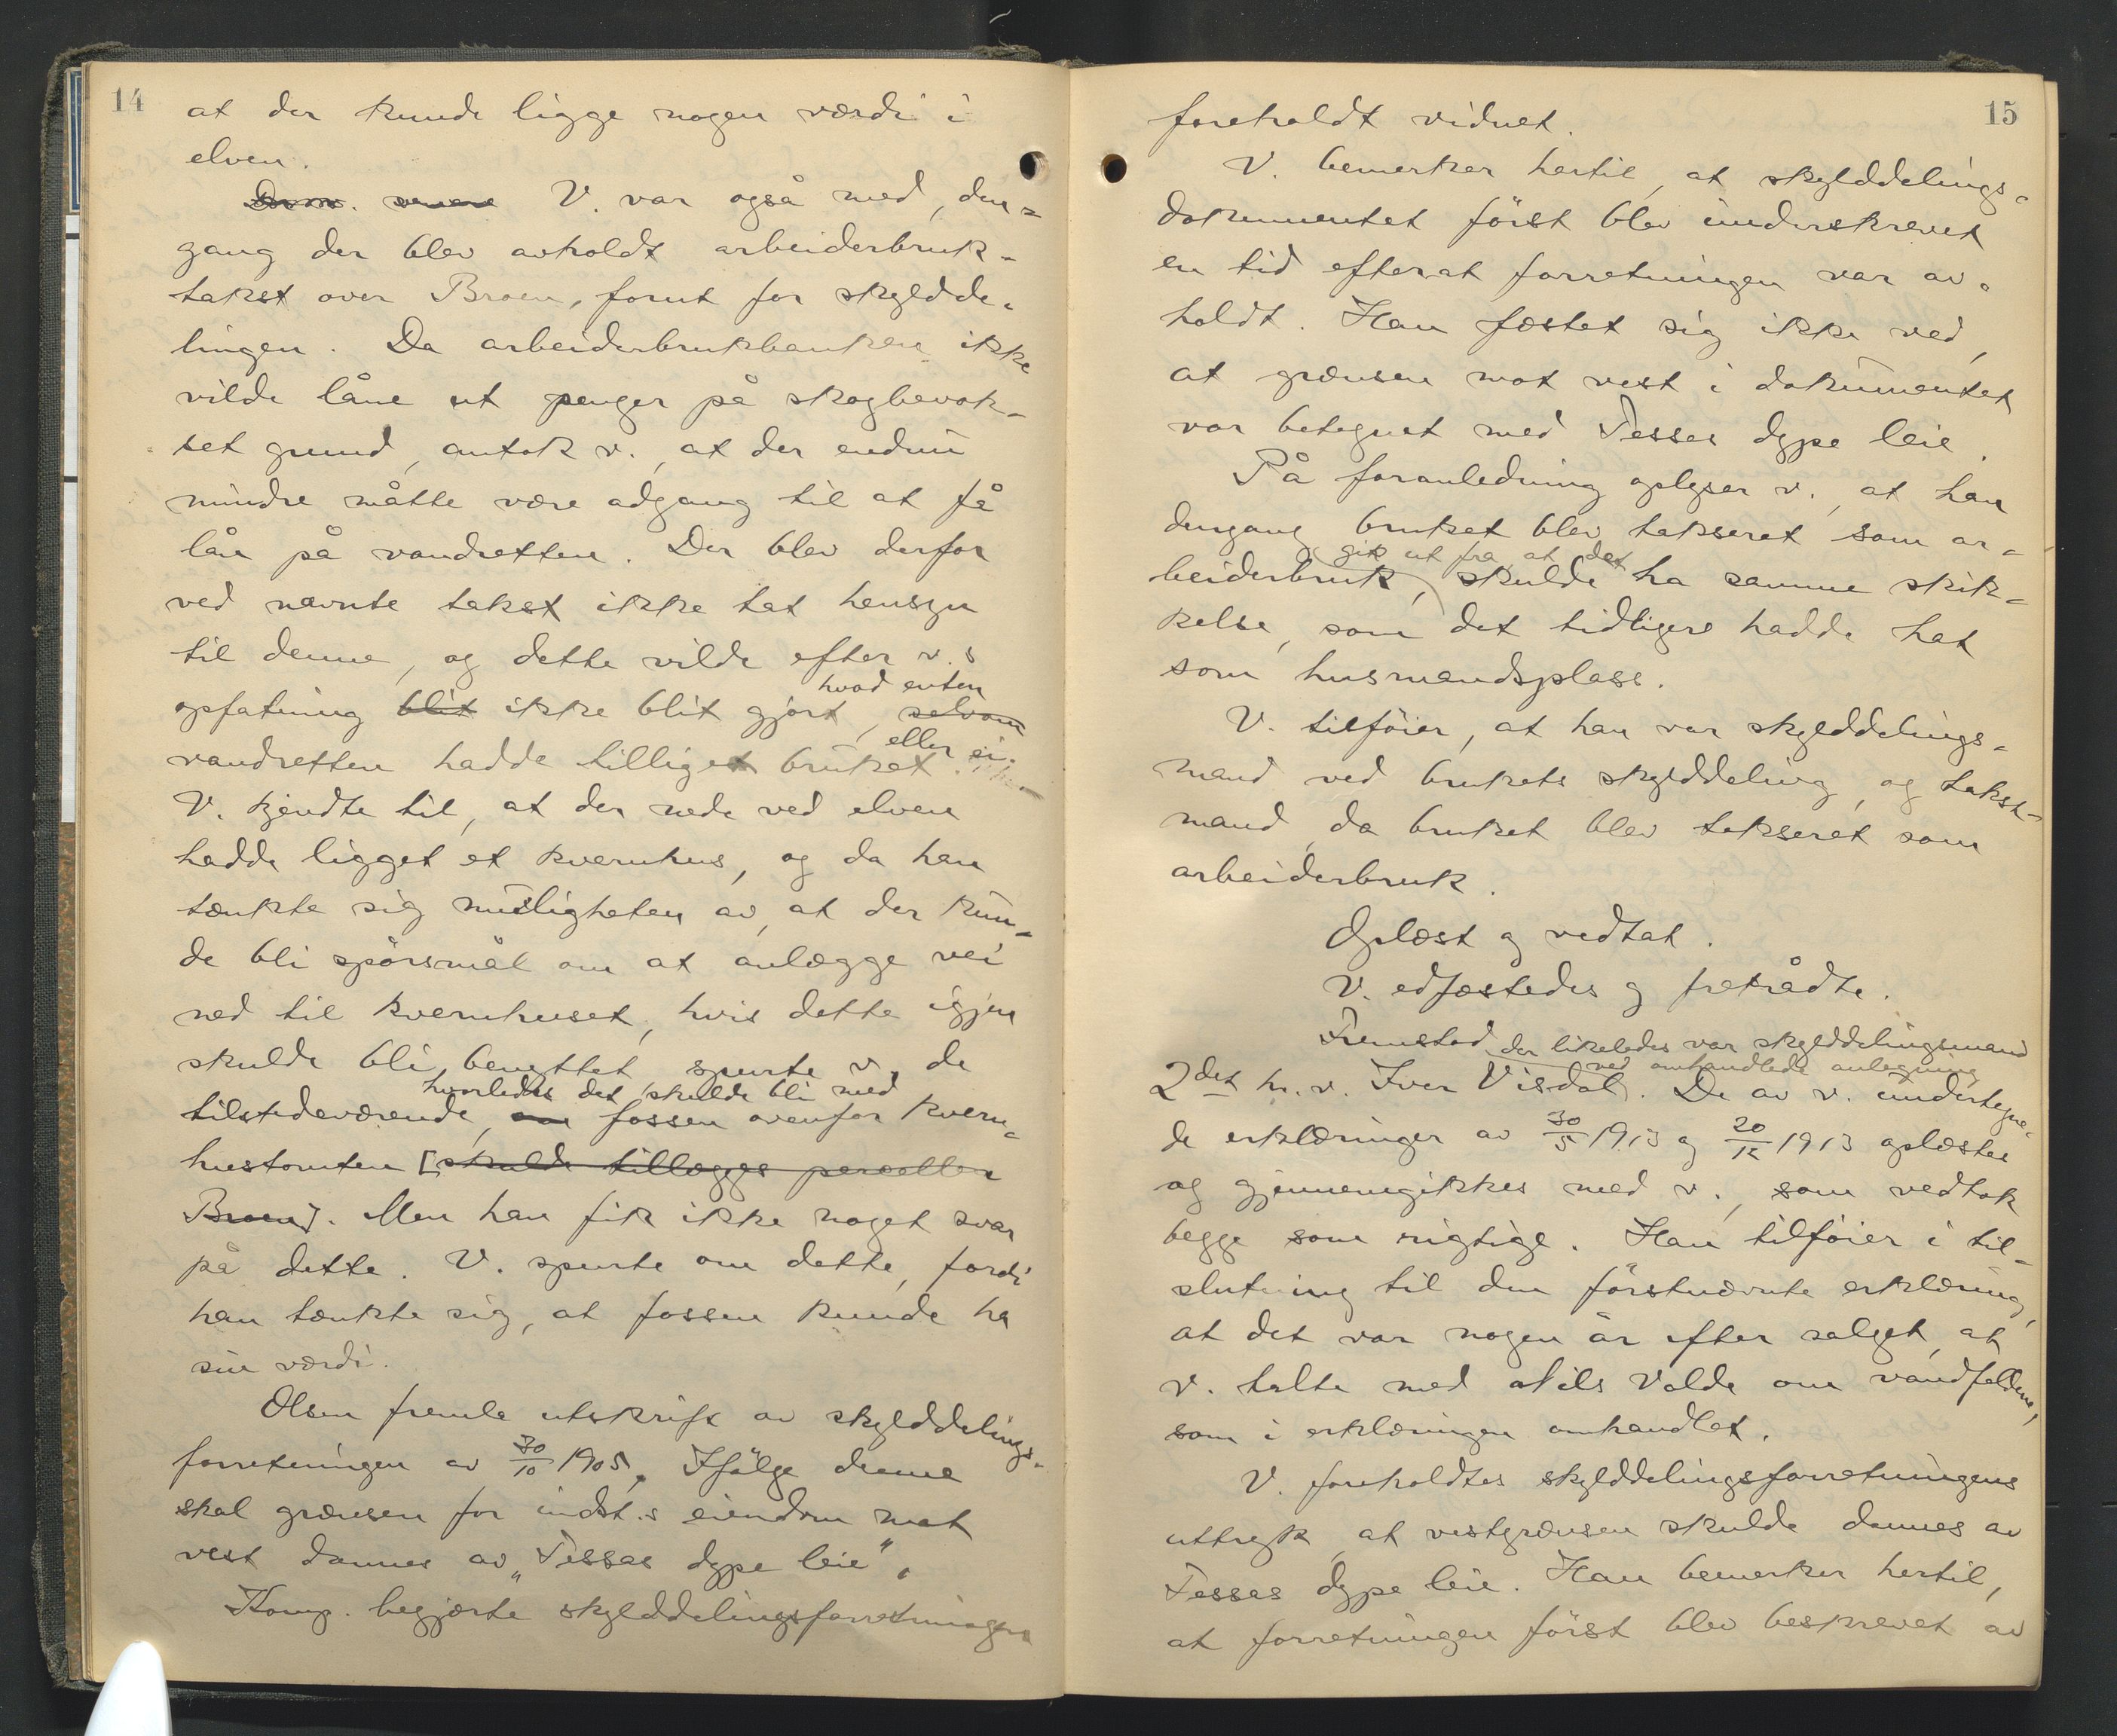 14
at der kunde ligge nogen værdi i
elven.
V. var også med, den-
gang der blev avholdt arbeiderbruk-
takst over Broen, forut for skylddе-
lingen. Da arbeiderbrukbanken ikke
vilde låne ut penger på skogbevok-
set grund, antok v., at der endnu
mindre måtte være adgang til at få
lån på vandretten. Der blev derfor
ved nævnte takst ikke tat hensyn
til denne, og dette vilde efter v.s
hvad enten
opfatning blit ikke blit gjort, selvom
eller ei.
vandretten hadde tilliget bruket.
V. kjendte til, at der nede ved elven
hadde ligget et kvernhus, og da han
tænkte sig muligheten av, at der kun-
de bli spørsmål om at anlægge vei
ned til kvernhuset, hvis dette igjen
skulde bli benyttet, spurte v. de
hvorledes det skulde bli med
tilstedeværende, om fossen ovenfor kvern-
hustomten [skulde tillægges parcellen
Broen]. Men han fik ikke noget svar
på dette. V. spurte om dette, fordi
han tænkte sig, at fossen kunde ha
sin værdi.
Olsen fremla utskrift av skylddelings-
forretningen av 30/10 1905. Ifølge denne
skal grænsen for indst.s eiendom mot
vest dannes av „Tessas dype leie".
Komp. begjærte skylddelingsforretningen
15
foreholdt vidnet.
V. bemerker hertil, at skylddelings-
dokumentet først blev underskrevet
en tid efterat forretningen var av-
holdt. Han fæstet sig ikke ved,
at grænsen mot vest i dokumentet
var betegnet med Tesses dype leie.
På foranledning oplyser v., at han
dengang bruket blev taksseret som ar-
gik ut fra at det
beiderbruk, skulde ha samme skik-
kelse, som det tidligere hadde hat
som husmandsplass.
V. tilføier, at han var skylddelings-
mand ved brukets skylddeling, og takst-
mand, da bruket blev takseret som
arbeiderbruk.
Oplæst og vedtat.
V. edfæstedes og fratrådte.
Fremstod
der likeledes var skylddelingsmand
ved omhandlede anledning
2det h.v. Iver Visdal. De av v. undertegne-
de erklæringer av 30/5 1913 og 20/12 1913 oplæstes
og gjennemgikkes med v., som vedtok
begge som rigtige. Han tilføier i til-
slutning til den førstnævnte erklæring,
at det var nogen år efter salget, at
v. talte med Nils Valde om vandfaldene,
som i erklæringen omhandlet.
V. foreholdtes skylddelingsforretningens
uttryk, at vestgrænsen skulde dannes av
Tesses dype leie. Han bemerker hertil,
at forretningen først blev beskrevet av